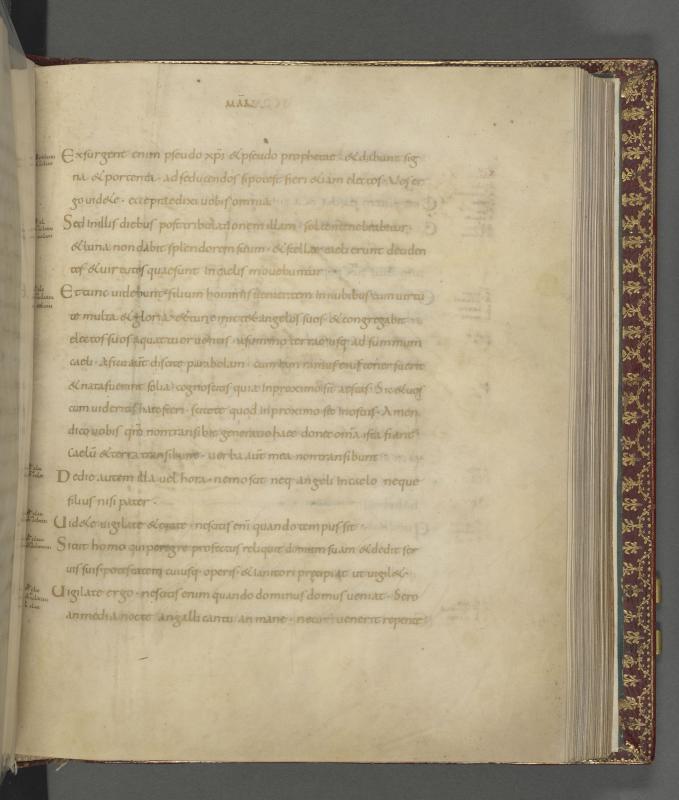 MAR
Exsurgent enim pseudo xpi & pseudo prophetae · & dabunt sig
na & portenta · ad seducendos si potest fieri etiam electos · Vos er
go uid&e · ecce praedixi uobis omnia
Sed in illis diebus post tribulationem illam · sol contenebrabitur
& luna non dabit splendorem suum · & stellae caeli erunt deciden
tes & uirtutes quae sunt in caelis mouebuntur
Et tunc uidebunt filium hominis uenientem in nubibus cum uirtu
te multa & gloria · & tunc mitt& angelos suos · & congregabit
electos suos a quattuor uentis · a summo terrae usq; ad summum
caeli · A ficu aut discite parabolam · cum iam ramus eius tener fuerit
& nata fuerint folia · cognoscitis quia in proximo sit aestas · Sic & uos
cum uideritis haec fieri · scitote quod in proximo sit in ostiis · Amen
dico uobis qm non transibit generatio haec donec omia ista fiant
Caelu & terra transibunt · uerba aut mea non transibunt
De die autem illa uel hora · nemo scit neq; angeli in caelo neque
filius nisi pater ·
Uid&e uigilate & orate · nescitis eni quando tempus sit ·
Sicut homo qui peregre profectus reliquit domum suam & dedit ser
uis suis potestatem cuiusq; operis · & ianitori praecipiat ut uigil& ·
Uigilate ergo · nescitis enim quando dominus domus ueniat · Sero
an media nocte an galli cantu an mane · ne cum uenerit repente